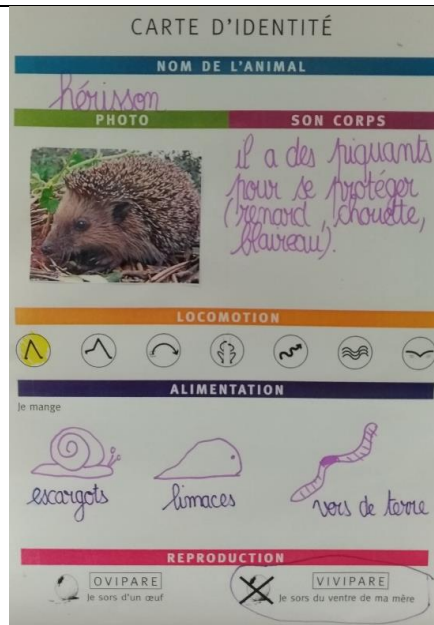 CARTE D'IDENTITÉ
NOM DE L'ANIMAL
hérisson
PHOTO
SON CORPS
il a des piquants
pour se protéger
(renard, chouette,
blaireau).
LOCOMOTION
ALIMENTATION
Je mange
escargots
limaces
vers de terre
REPRODUCTION
OVIPARE
Je sors d'un œuf
VIVIPARE
Je sors du ventre de ma mère